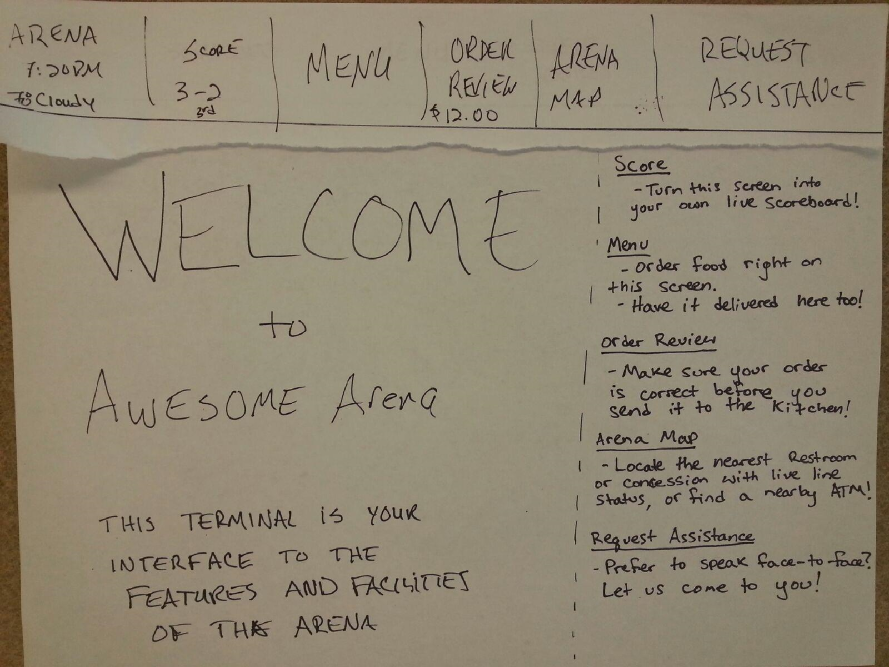 ARENA
7:20PM
73° Cloudy
SCORE
3-2
3rd
MENU
ORDER
REVIEW
$12.00
ARENA
MAP
REQUEST
ASSISTANCE
WELCOME
to
AWESOME Arena
THIS TERMINAL IS YOUR
INTERFACE TO THE
FEATURES AND FACILITIES
OF THE ARENA
Score
- Turn this screen into
your own live scoreboard!
Menu
- Order food right on
this screen.
- Have it delivered here too!
Order Review
- Make sure your order
is correct before you
send it to the Kitchen!
Arena Map
- Locate the nearest Restroom
or concession with live line
status, or find a nearby ATM!
Request Assistance
- Prefer to speak face-to face?
Let us come to you!